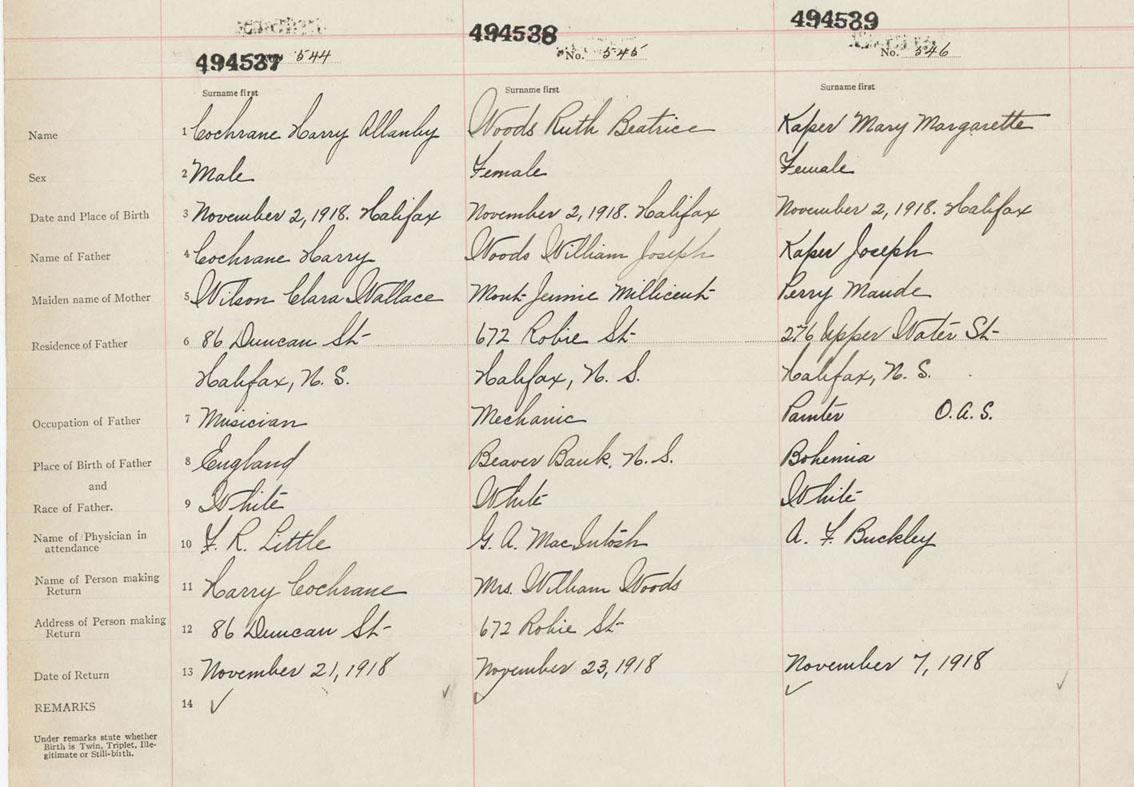 494537 544
494538 No. 545
494539 No. 546
Surname first Surname first Surname first
Name 1 Cochrane Harry Allanby Woods Ruth Beatrice Kaper Mary Margarette
Sex 2 Male Female Female
Date and Place of Birth 3 November 2, 1918. Halifax November 2, 1918. Halifax November 2, 1918. Halifax
Name of Father 4 Cochrane Harry Woods William Joseph Kaper Joseph
Maiden name of Mother 5 Wilson Clara Wallace Mont Jennie Millicent Perry Maude
Residence of Father 6 86 Duncan St 672 Robie St 276 Upper Water St
Halifax, N. S. Halifax, N. S. Halifax, N. S.
Occupation of Father 7 Musician Mechanic Painter O.A.S.
Place of Birth of Father 8 England Beaver Bank, N. S. Bohemia
and
Race of Father. 9 White White White
Name of Physician in
attendance 10 F. R. Little G. A. MacIntosh A. F. Buckley
Name of Person making
Return 11 Harry Cochrane Mrs. William Woods
Address of Person making
Return 12 86 Duncan St 672 Robie St
Date of Return 13 November 21, 1918 November 23, 1918 November 7, 1918
REMARKS 14 ✓ ✓ ✓
Under remarks state whether
Birth is Twin, Triplet, Ille-
gitimate or Still-birth.